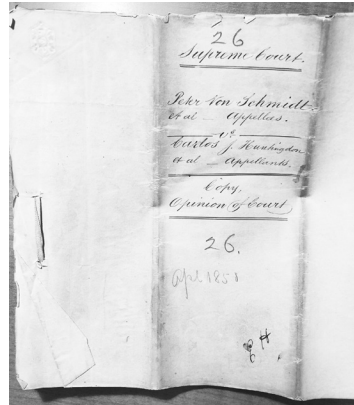 26
Supreme Court.
Peter Von Schmidt.
et al – Appellees.
vs.
Carlos J. Hunhigdon
et al – Appellants.
Copy.
Opinion (of Court)
26.
Apl 1850
H